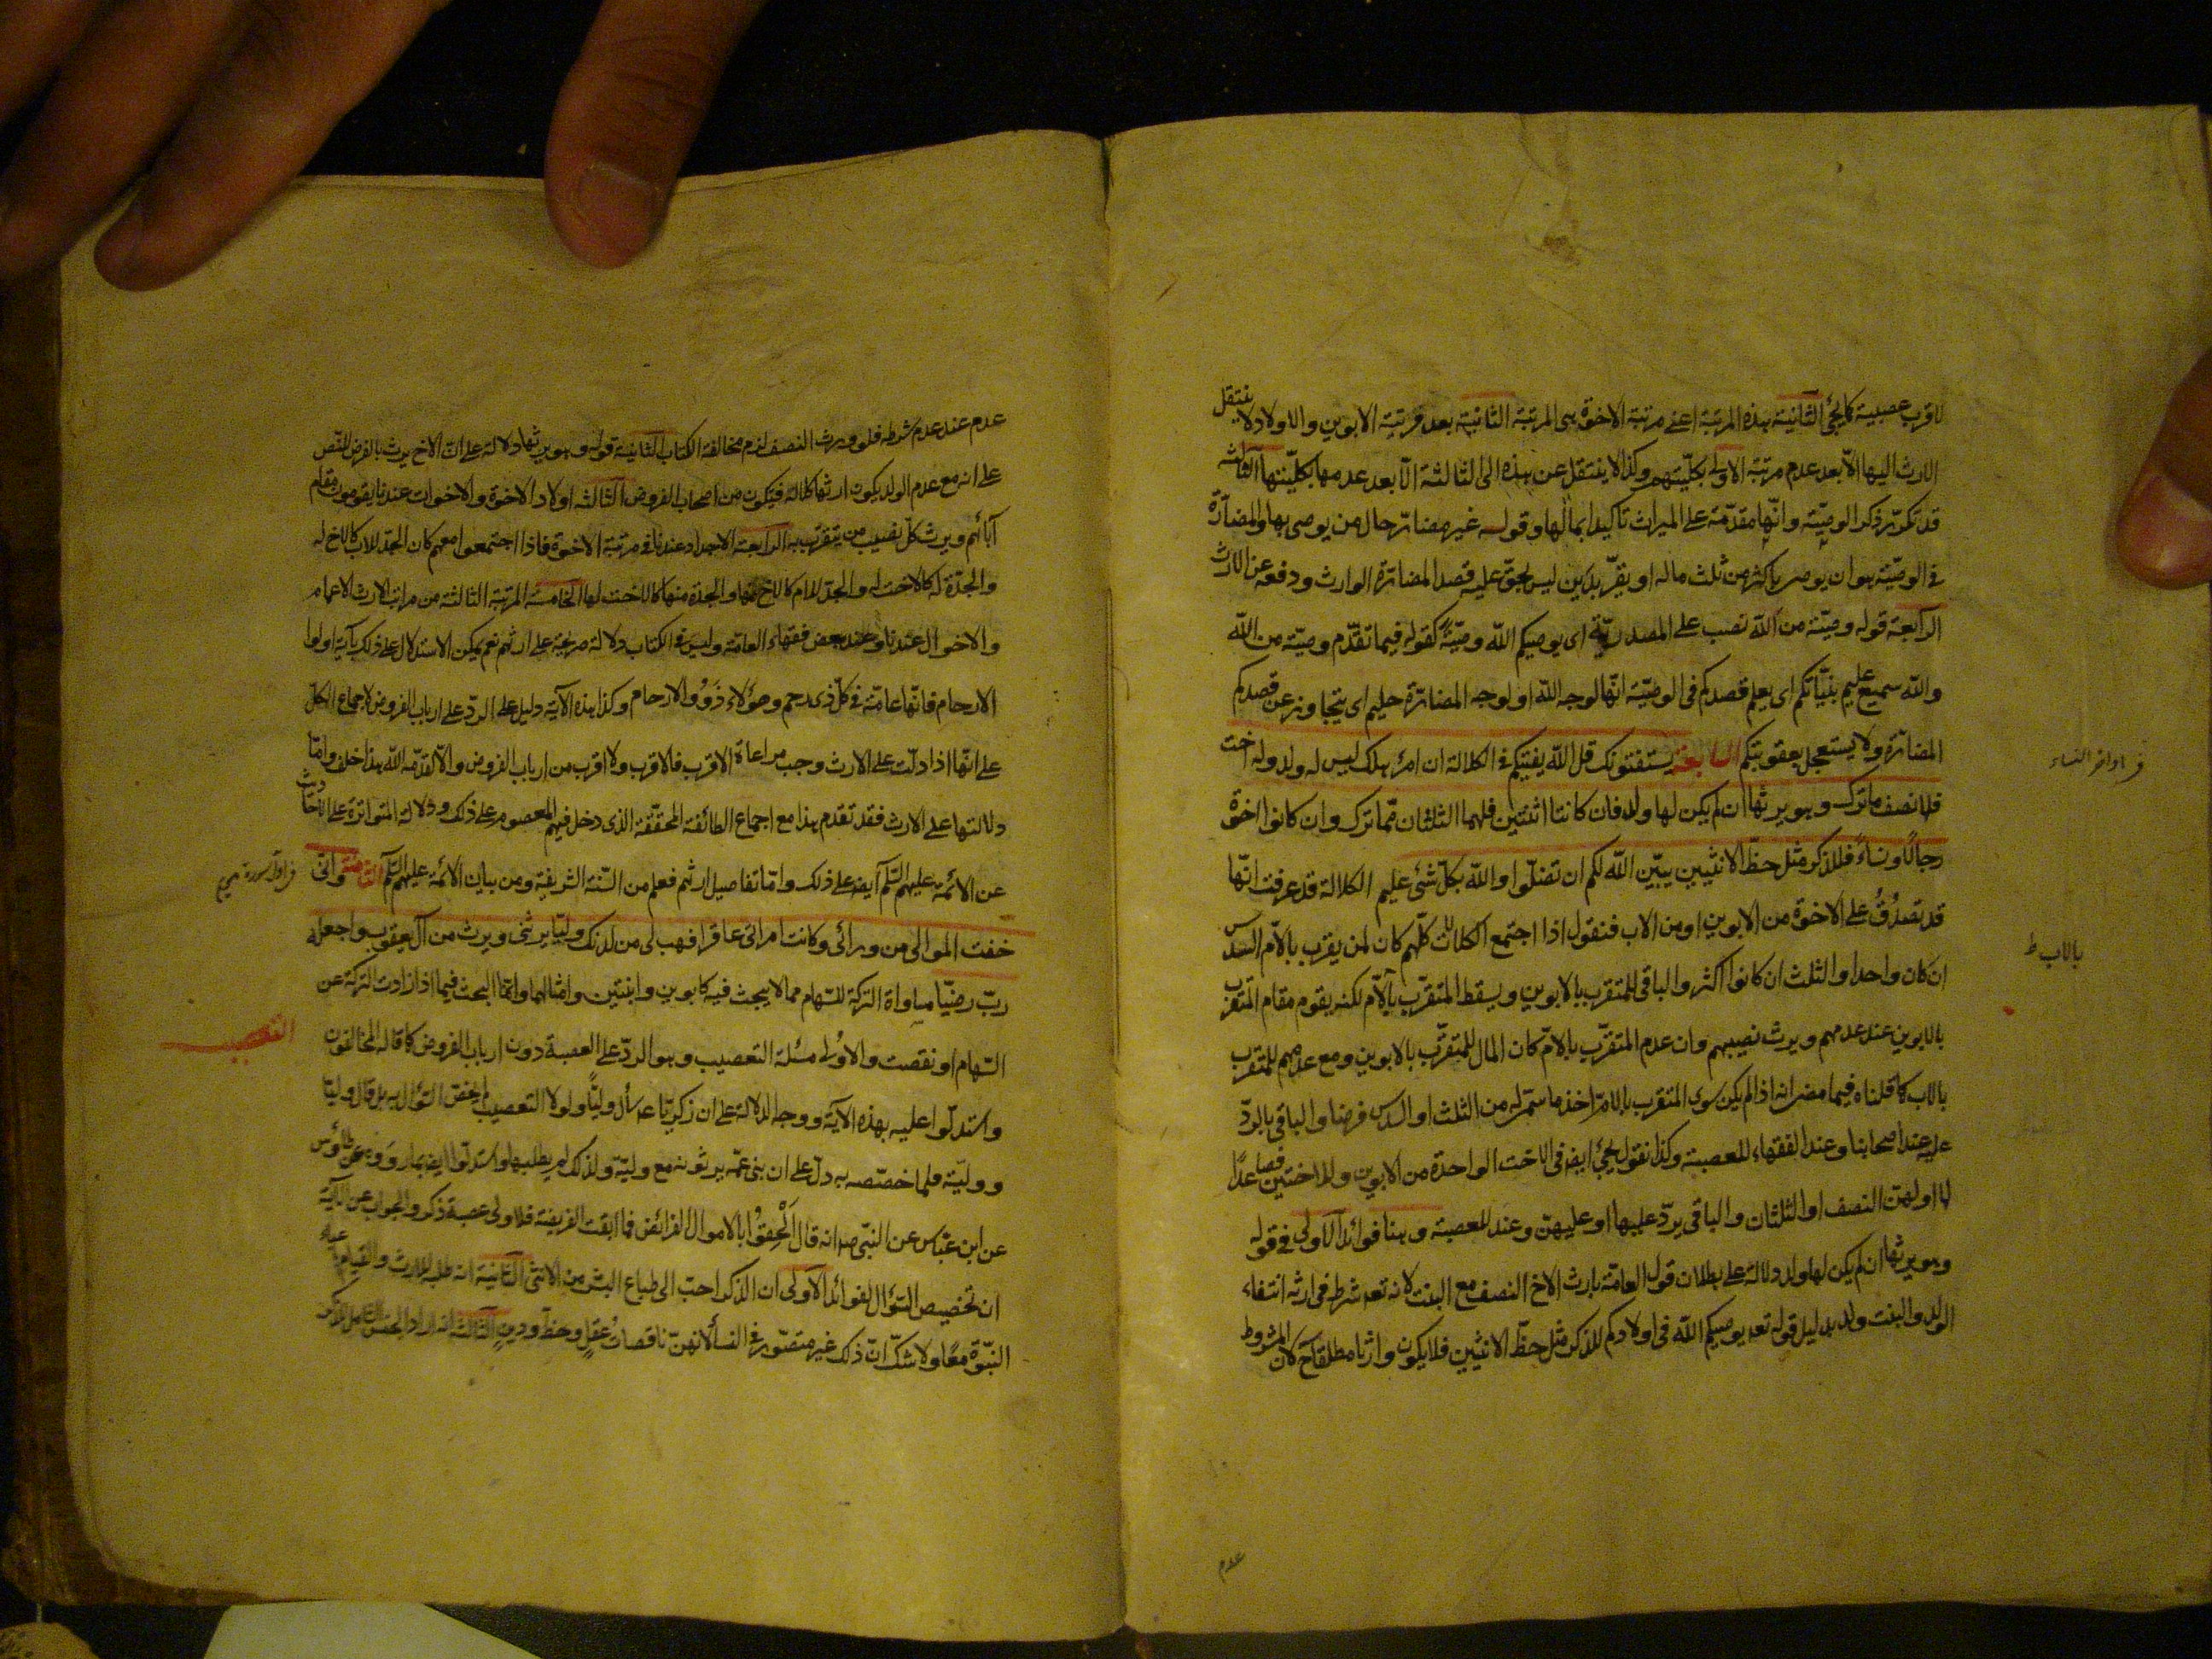 لاقرب عصبية كما يجئ الثانية هذه المرتبة اعني مرتبة الاخوة هي المرتبة الثانية بعد مرتبة الابوين والاولاد لا ينتقل
الارث اليها الا بعد عدم مرتبة الاولى بكليتهم وكذا لا ينتقل عن هذه الى الثالثة الا بعد عدمها بكليتها الثالثة
قد تكرر ذكر الوصية وانها مقدمة على الميراث تأكيدا بمالها وقوله غير مضار حال من يوصى بها والمضارة
في الوصية هو ان يوصى باكثر من ثلث ماله او يقر بدين ليس بحق عليه قصد المضارة الوارث ودفعه عن الارث
الرابعة قوله وصية من الله نصب على المصدرية اى يوصيكم الله وصية كقوله فيما تقدم وصية من الله
والله سميع عليم بنياتكم اى يعلم قصدكم في الوصية انها لوجه الله او لوجه المضارة حليم اى يتجاوز عن قصدكم
المضارة ولا يستعجل بعقوبتكم السابعة يستفتونك قل الله يفتيكم في الكلالة ان امرؤ هلك ليس له ولد وله اخت
فلها نصف ما ترك وهو يرثها ان لم يكن لها ولد فان كانتا اثنتين فلهما الثلثان مما ترك وان كانوا اخوة
رجالًا ونساءً فللذكر مثل حظ الانثيين يبيّن الله لكم ان تضلّوا والله بكل شئ عليم الكلالة قد عرفت انها
قد تصدُقُ على الاخوة من الابوين او من الاب فنقول اذا اجتمع الكلالات كلهم كان لمن يقرب بالام السدس
ان كان واحدا والثلث ان كانوا اكثر والباقى للمتقرب بالابوين ويسقط المتقرب بالام لكنه يقوم مقام المتقرب
بالابوين عند عدمهم ويرث نصيبهم وان عدم المتقرب بالام كان المال للمتقرب بالابوين ومع عدمهم للمتقرب
بالاب كما قلناه فيما مضى انه اذا لم يكن سوى المتقرب بالام اخذ ما سمى له من الثلث او السدس فرضا والباقى بالرد
عليه عند اصحابنا وعند الفقهاء للعصبة وكذا نقول يجئ ايضا في الاخت الواحدة من الابوين وللاختين فصاعدًا
لها او لهن النصف او الثلثان والباقى يرد عليها او عليهن وعند للعصبة وهنا فوائد الاولى في قوله
وهو يرثها ان لم يكن لها ولد دلالة على بطلان قول العامة بارث الاخ النصف مع البنت لانه تعالى شرط في ارثه انتفاء
الولد والبنت ولد بدليل قوله تعالى يوصيكم الله في اولادكم للذكر مثل حظ الانثيين فلا يكون وارثا مطلقا لان المشروط
عدم
فى اواخر النساء
بالاب ط
عدم عند عدم شرطه فلو ورث النصف لزم مخالفة الكتاب الثانية قوله وهو يرثها دلالة على ان الاخ يرث بالفرض للنص
على انه مع عدم الولد يكون ارثها كلالة فيكون من اصحاب الفروض الثالثة اولاد الاخوة والاخوات عندنا يقومون مقام
آبائهم ويرث كل نصيب من يتقرب به الرابعة الاجداد عندنا في مرتبة الاخوة فاذا اجتمعوا معهم كان الجد للاب كالاخ له
والجدة له كالاخت له والجد للام كالاخ لها والجدة منها كالاخت لها الخامسة المرتبة الثالثة من مراتب الارث الاعمام
والاخوال عندنا وعند بعض فقهاء العامة وليس في الكتاب دلالة صريحة على ارثهم نعم يمكن الاستدلال على ذلك بآية اولوا
الارحام فانها عامة في كل ذى رحم وهؤلاء ذَوُو الارحام وكذا هذه الآية دليل على الرد على ارباب الفروض لاجماع الكل
على انها اذا دلت على الارث وجب مراعاة الاقرب فالاقرب ولا اقرب من ارباب الفروض والا لقدمه الله هذا خلف واما
دلالتها على الارث فقد تقدم هذا مع اجماع الطائفة المحققة الذى دخل فيهم المعصوم على ذلك ودلالة المتواترة على الاحاديث
عن الائمة عليهم السلم ايضا على ذلك واما تفاصيل ارثهم فعلم من السنة الشريفة ومن بيان الائمة عليهم السلم الثامنة وانى
خفت الموالى من ورائى وكانت امرأتى عاقرا فهب لى من لدنك وليا يرثنى ويرث من آل يعقوب واجعله
رب رضيّا مساواة التركة للسهام مما لا يبحث فيه كابوين وابنتين وامثالهما وانما البحث فيما اذا زادت التركة عن
السهام او نقصت والاولى مسئلة التعصيب وهو الرد على العصبة دون ارباب الفروض كما قاله المخالفون
واستدلوا عليه بهذه الآية ووجه الدلالة على ان زكريا ع سأل وليًّا ولولا التعصيب لم يختص السؤال به بل قال وليا
ووليّة فلما خصصه به دل على ان بنى عمه يرثونه مع وليّة ولذلك لم يطلبها واستدلوا ايضا بما روى عن طاوس
عن ابن عباس عن النبى ص انه قال اَلْحِقُوا بالاموال الفرائض فما ابقت الفريضة فلاولى عصبة ذكر والجواب عن الآية
ان تخصيص السؤال لفوائد الاولى ان الذكر احب الى طباع البشر من الانثى الثانية انه طلب للارث والقيام باعباء
النبوة معًا ولا شك ان ذلك غير متصور في النسا لانهن ناقصات عقلٍ وحظٍ ودينٍ الثالثة انه اراد الجنس
فى اول سورة مريم
التعصيب